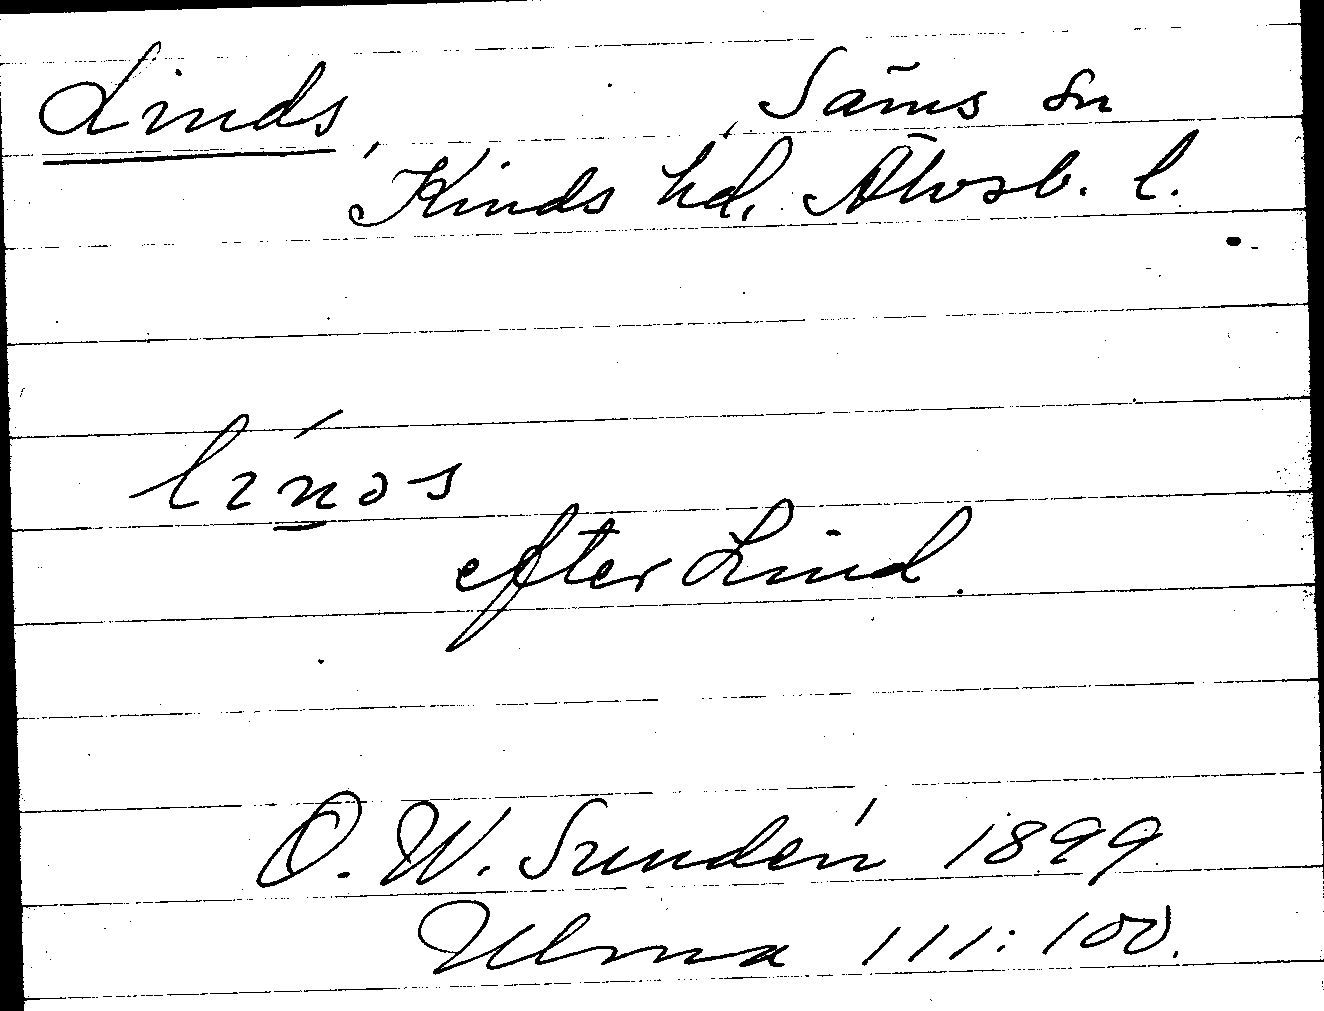 Linds, Säms sn
Kinds hd, Älvsb. l.
línəs
efter Lind.
O. W. Sundén 1899
Ulma 111:100.